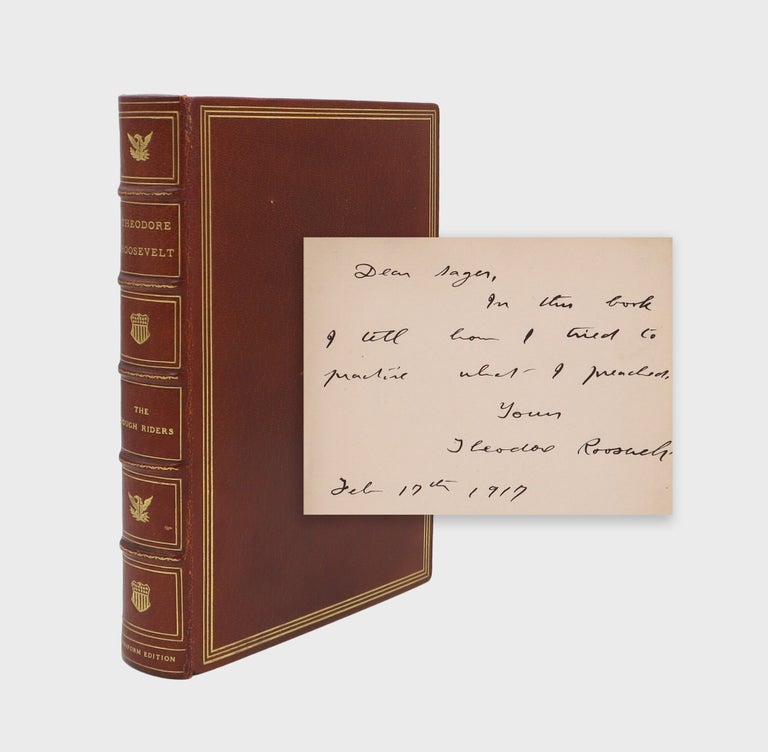 THEODORE
ROOSEVELT
THE
ROUGH RIDERS
UNIFORM EDITION
Dear Sager,
In this book
I tell how I tried to
practise what I preached.
Yours
Theodore Roosevelt
Feb 17th 1917